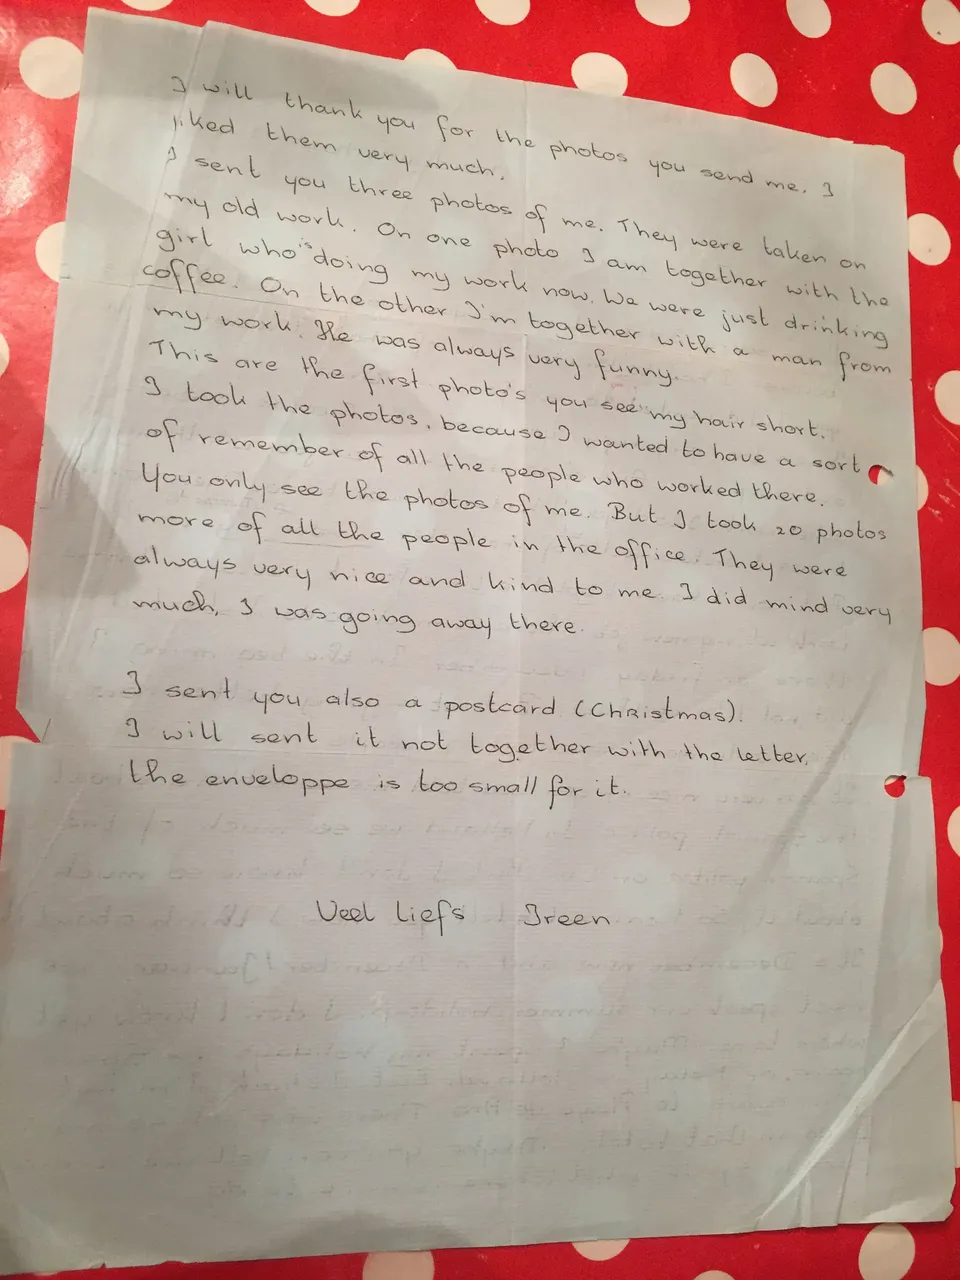 I will thank you for the photos you send me. I
liked them very much.
I sent you three photos of me. They were taken on
my old work. On one photo I am together with the
girl who is doing my work now. We were just drinking
coffee. On the other I'm together with a man from
my work. He was always very funny.
This are the first photo's you see my hair short.
I took the photos, because I wanted to have a sort
of remember of all the people who worked there.
You only see the photos of me. But I took 20 photos
more of all the people in the office. They were
always very nice and kind to me. I did mind very
much, I was going away there.
I sent you also a postcard (Christmas).
I will sent it not together with the letter,
the enveloppe is too small for it.
Veel liefs Ireen